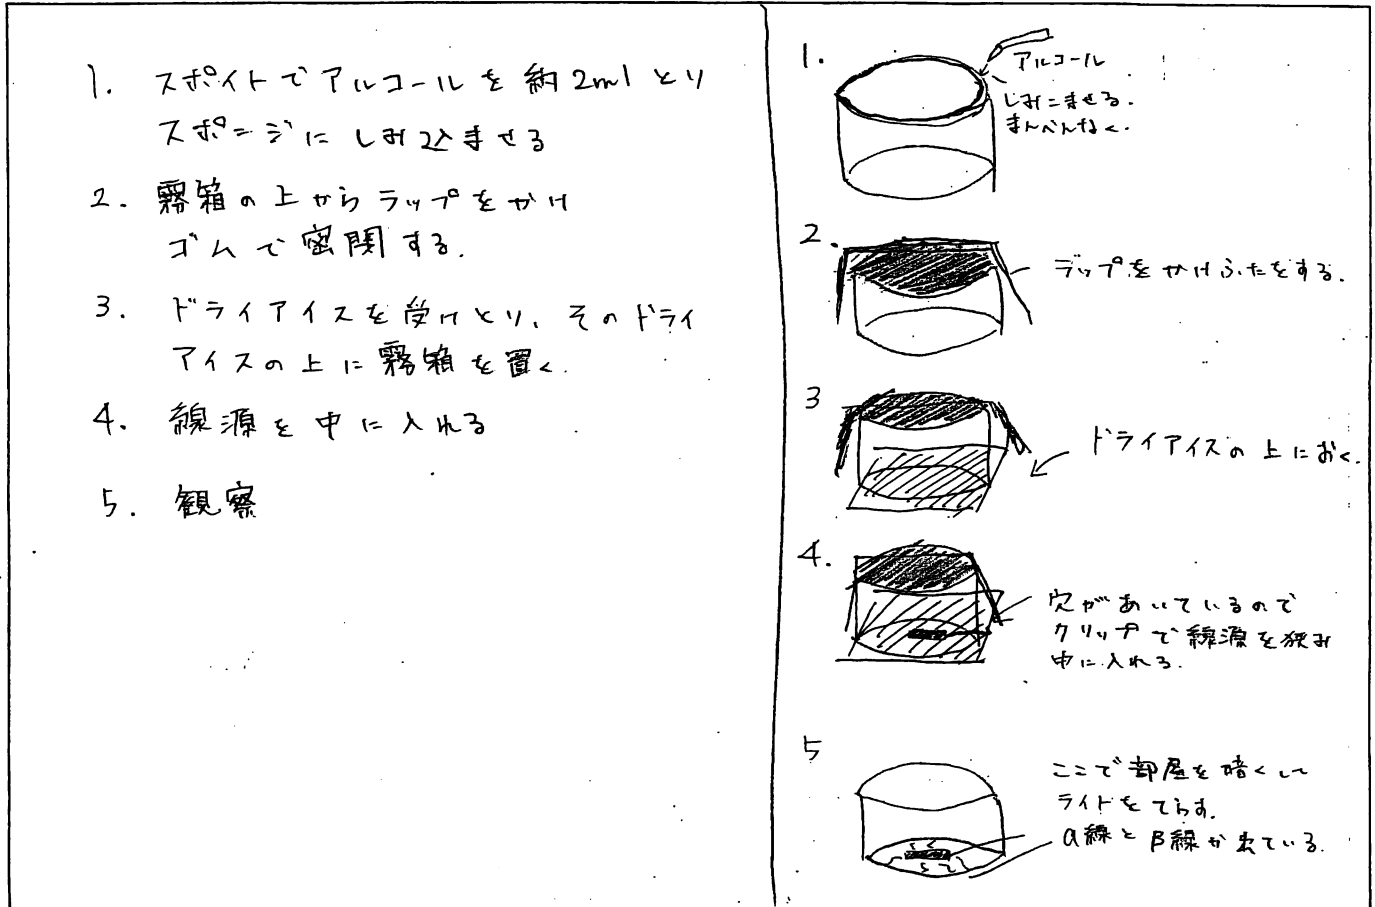 1. スポイトでアルコールを約2mlとり
スポンジにしみ込ませる
2. 霧箱の上からラップをかけ
ゴムで密閉する.
3. ドライアイスを受けとり、そのドライ
アイスの上に霧箱を置く.
4. 線源を中に入れる
5. 観察
1.
アルコール
しみこませる.
まんべんなく.
2.
ラップをかけふたをする.
3
ドライアイスの上におく.
4.
穴があいているので
クリップで線源を挟み
中に入れる.
5
ここで部屋を暗くして
ライトをてらす.
α線とβ線が出ている.